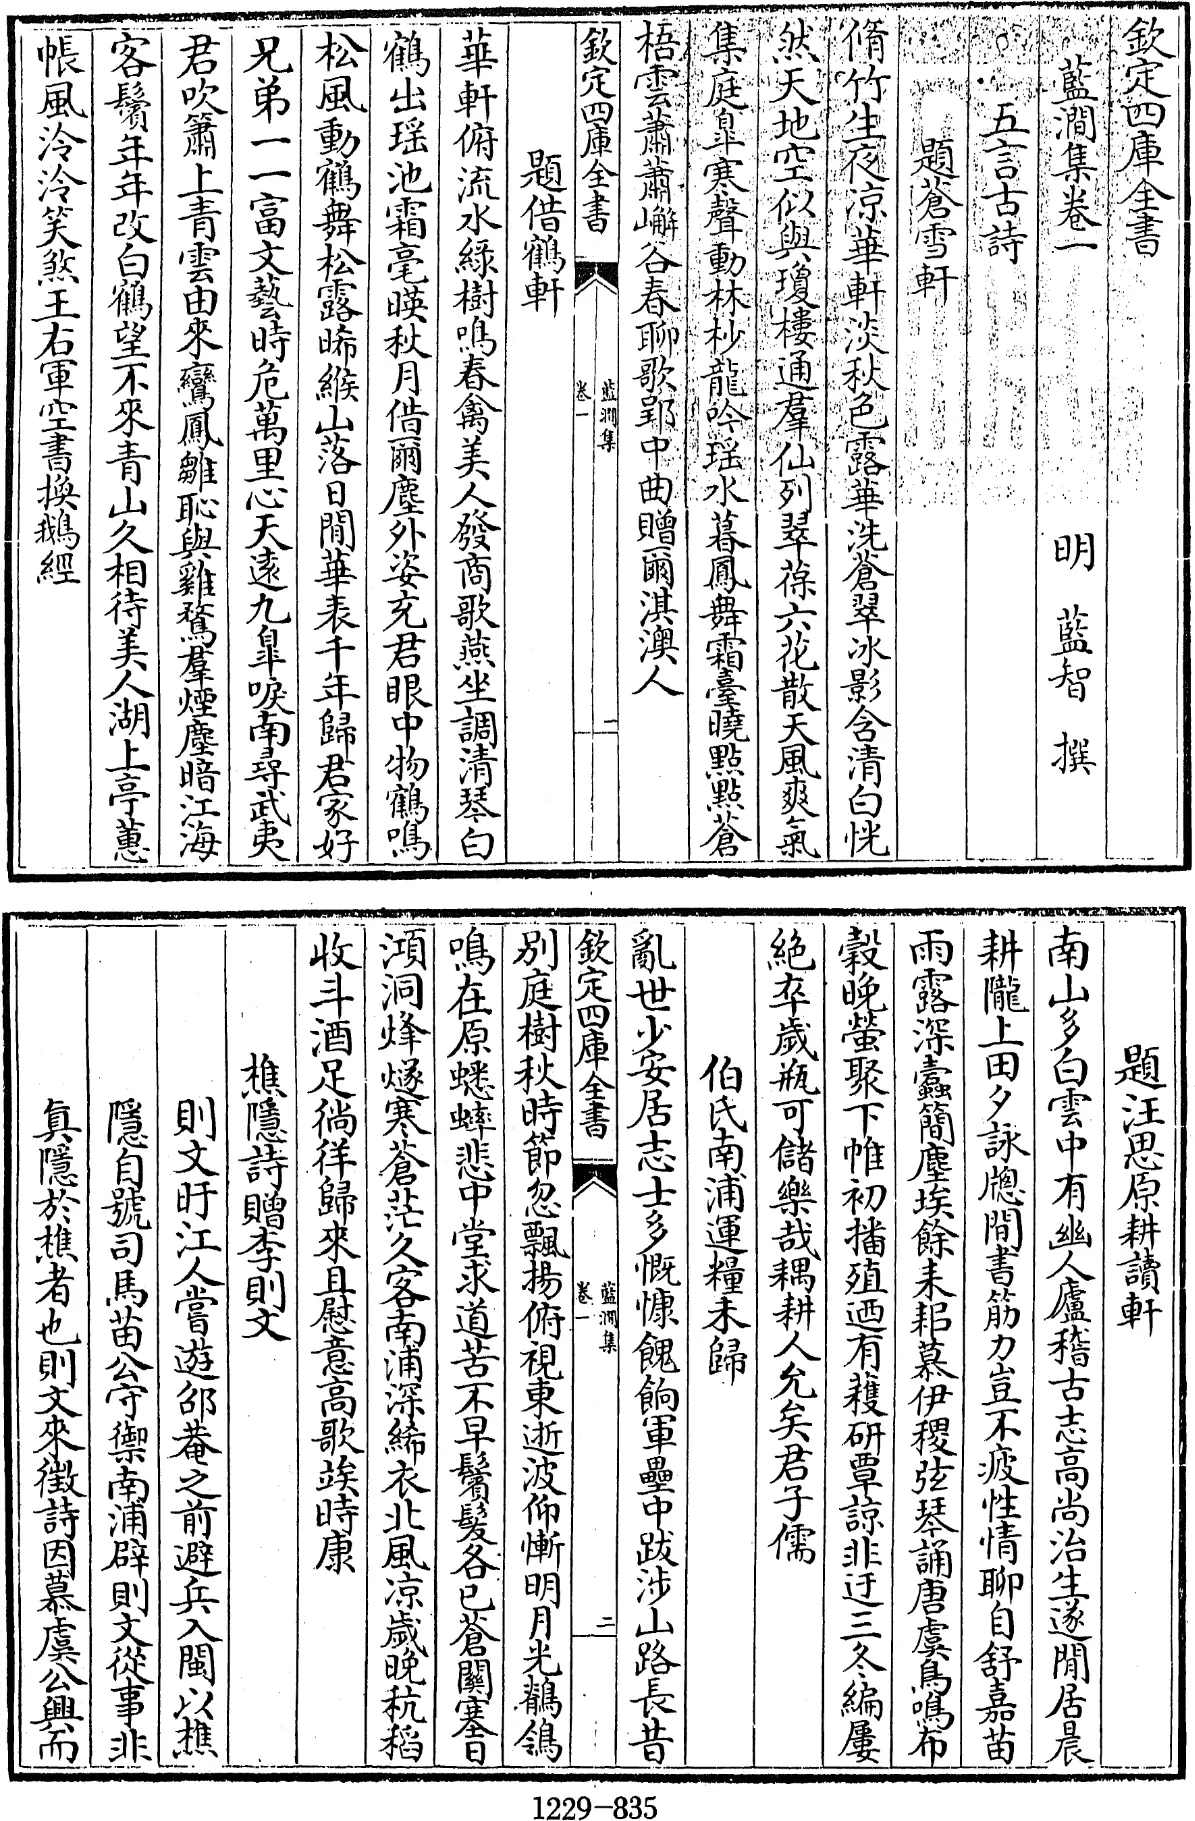 欽定四庫全書
藍澗集卷一
明 藍智 撰
五言古詩
題蒼雪軒
脩竹生夜凉華軒淡秋色露華洗蒼翠冰影含清白恍
然天地空似與瓊樓通羣仙列翠葆六花散天風爽氣
集庭臯寒聲動林杪龍吟瑶水暮鳳舞霜臺曉點點蒼
梧雲蕭蕭嶰谷春聊歌郢中曲贈爾淇澳人
欽定四庫全書
藍澗集
卷一
一
題借鶴軒
華軒俯流水緑樹鳴春禽美人發商歌燕坐調清琴白
鶴出瑶池霜毫暎秋月借爾塵外姿充君眼中物鶴鳴
松風動鶴舞松露晞緱山落日閒華表千年歸君家好
兄弟一一富文藝時危萬里心天遠九臯唳南尋武夷
君吹簫上青雲由來鸞鳳雛恥與雞鶩羣煙塵暗江海
客鬢年年改白鶴望不來青山久相待美人湖上亭蕙
帳風泠泠笑煞王右軍空書換鵝經
題汪思原耕讀軒
南山多白雲中有幽人廬稽古志高尚治生遂閒居晨
耕隴上田夕詠牕間書筋力豈不疲性情聊自舒嘉苗
雨露深蠹簡塵埃餘耒耜慕伊稷弦琴誦唐虞鳥鳴布
穀晚螢聚下帷初播殖迺有蓺研覃諒非迂三冬編屢
絶卒歲瓶可儲樂哉耦耕人允矣君子儒
伯氏南浦運糧未歸
亂世少安居志士多慨慷餽餉軍壘中跋涉山路長昔
欽定四庫全書
藍澗集
卷一
二
別庭樹秋時節忽飄揚俯視東逝波仰慚明月光鶺鴒
鳴在原蟋蟀悲中堂求道苦不早鬢髮各已蒼關塞日
澒洞烽燧寒蒼茫久客南浦深絺衣北風凉歲晚秔稻
收斗酒足徜徉歸來且慰意高歌竢時康
樵隱詩贈李則文
則文盱江人嘗遊邵菴之前避兵入閩以樵
隱自號司馬苗公守禦南浦辟則文從事非
真隱於樵者也則文來徵詩因慕虞公興而
1229－835